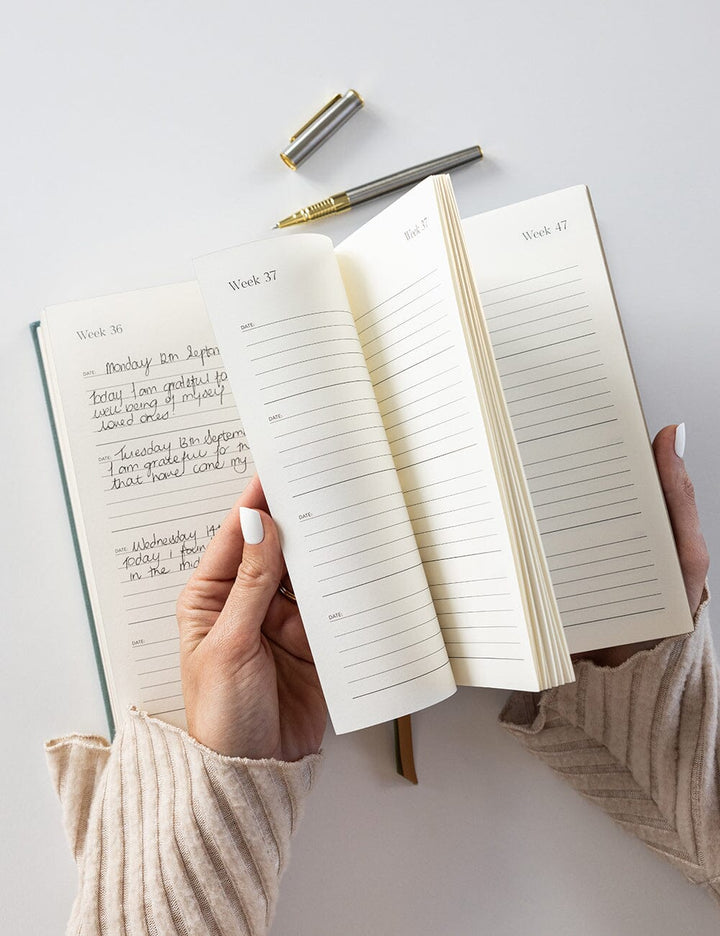 Week 36
DATE: Monday 12th Septem
Today I am grateful fo
well being of myself
loved ones.
DATE: Tuesday 13th Septem
I am grateful for
that have come my
DATE: Wednesday 14
Today I foun
in the mid
DATE:
Week 37
DATE:
DATE:
DATE:
DATE:
Week 37
Week 47